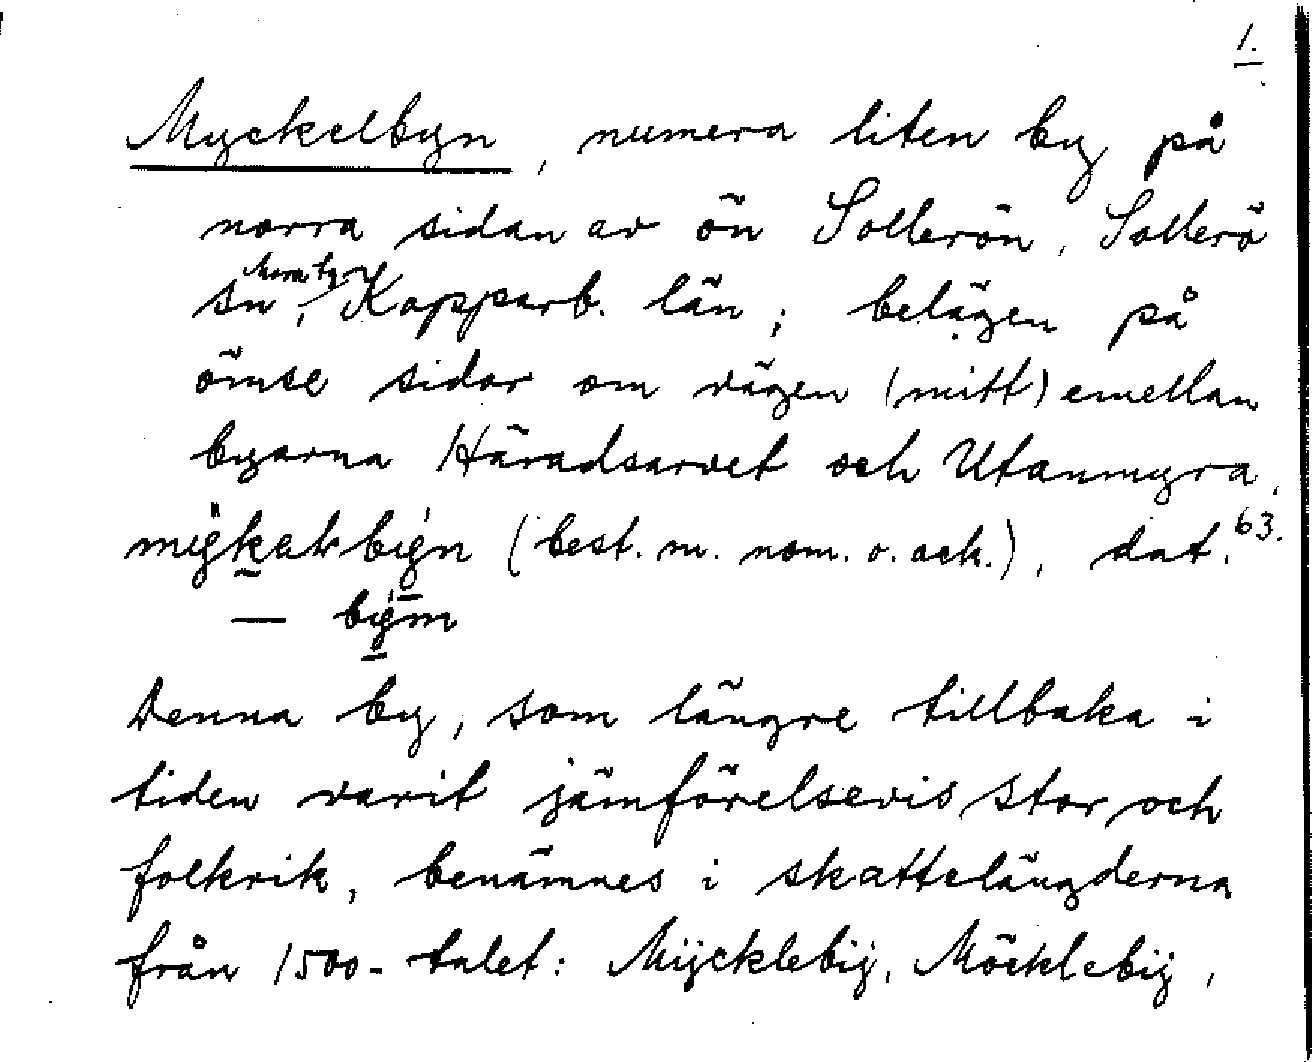 1.
Myckelbyn, numera liten by på
norra sidan av ön Sollerön, Sollerö
sn, Mora tg Kopparb. län; belägen på
ömse sidor om vägen (mitt) emellan
byarna Häradsarvet och Utanmyra.
(best. m. nom. o. ack.), dat. 63.
— bým
Denna by, som längre tillbaka i
tiden varit jämförelsevis stor och
folkrik, benämnes i skattelängderna
från 1500-talet: Mÿcklebÿ, Möcklebÿ,